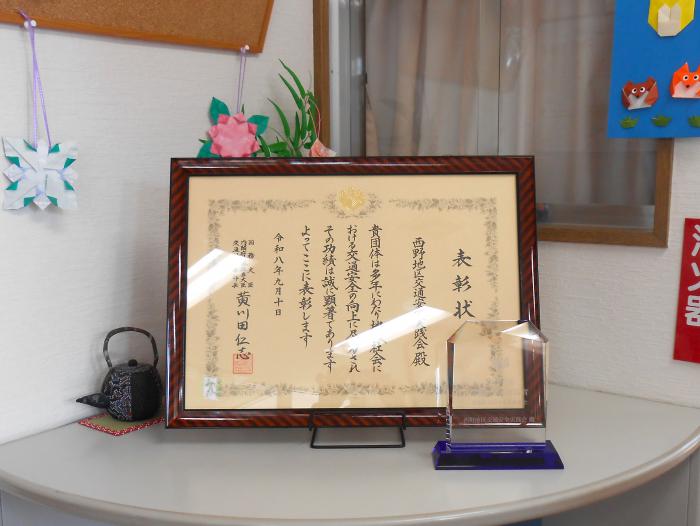 表彰状
西野地区交通安全実践会殿
貴団体は多年にわたり地域社会に
おける交通安全の向上に尽力され
その功績は誠に顕著であります
よってここに表彰します
令和八年九月十日
国務大臣
黄川田仁志
西野地区交通安全実践会 殿
消火器